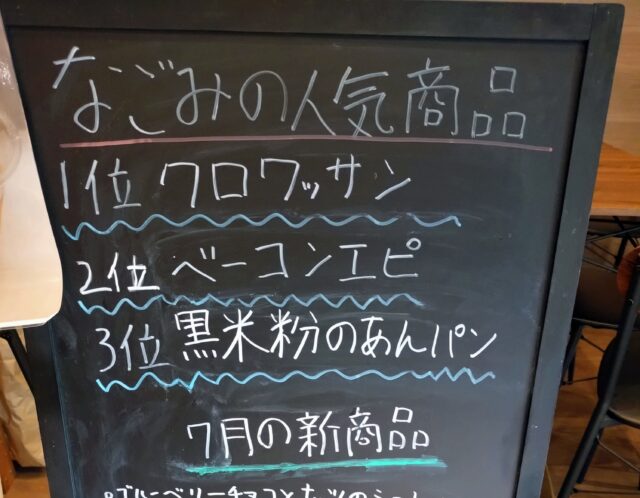 なごみの人気商品
1位 クロワッサン
2位 ベーコンエピ
3位 黒米粉のあんパン
7月の新商品